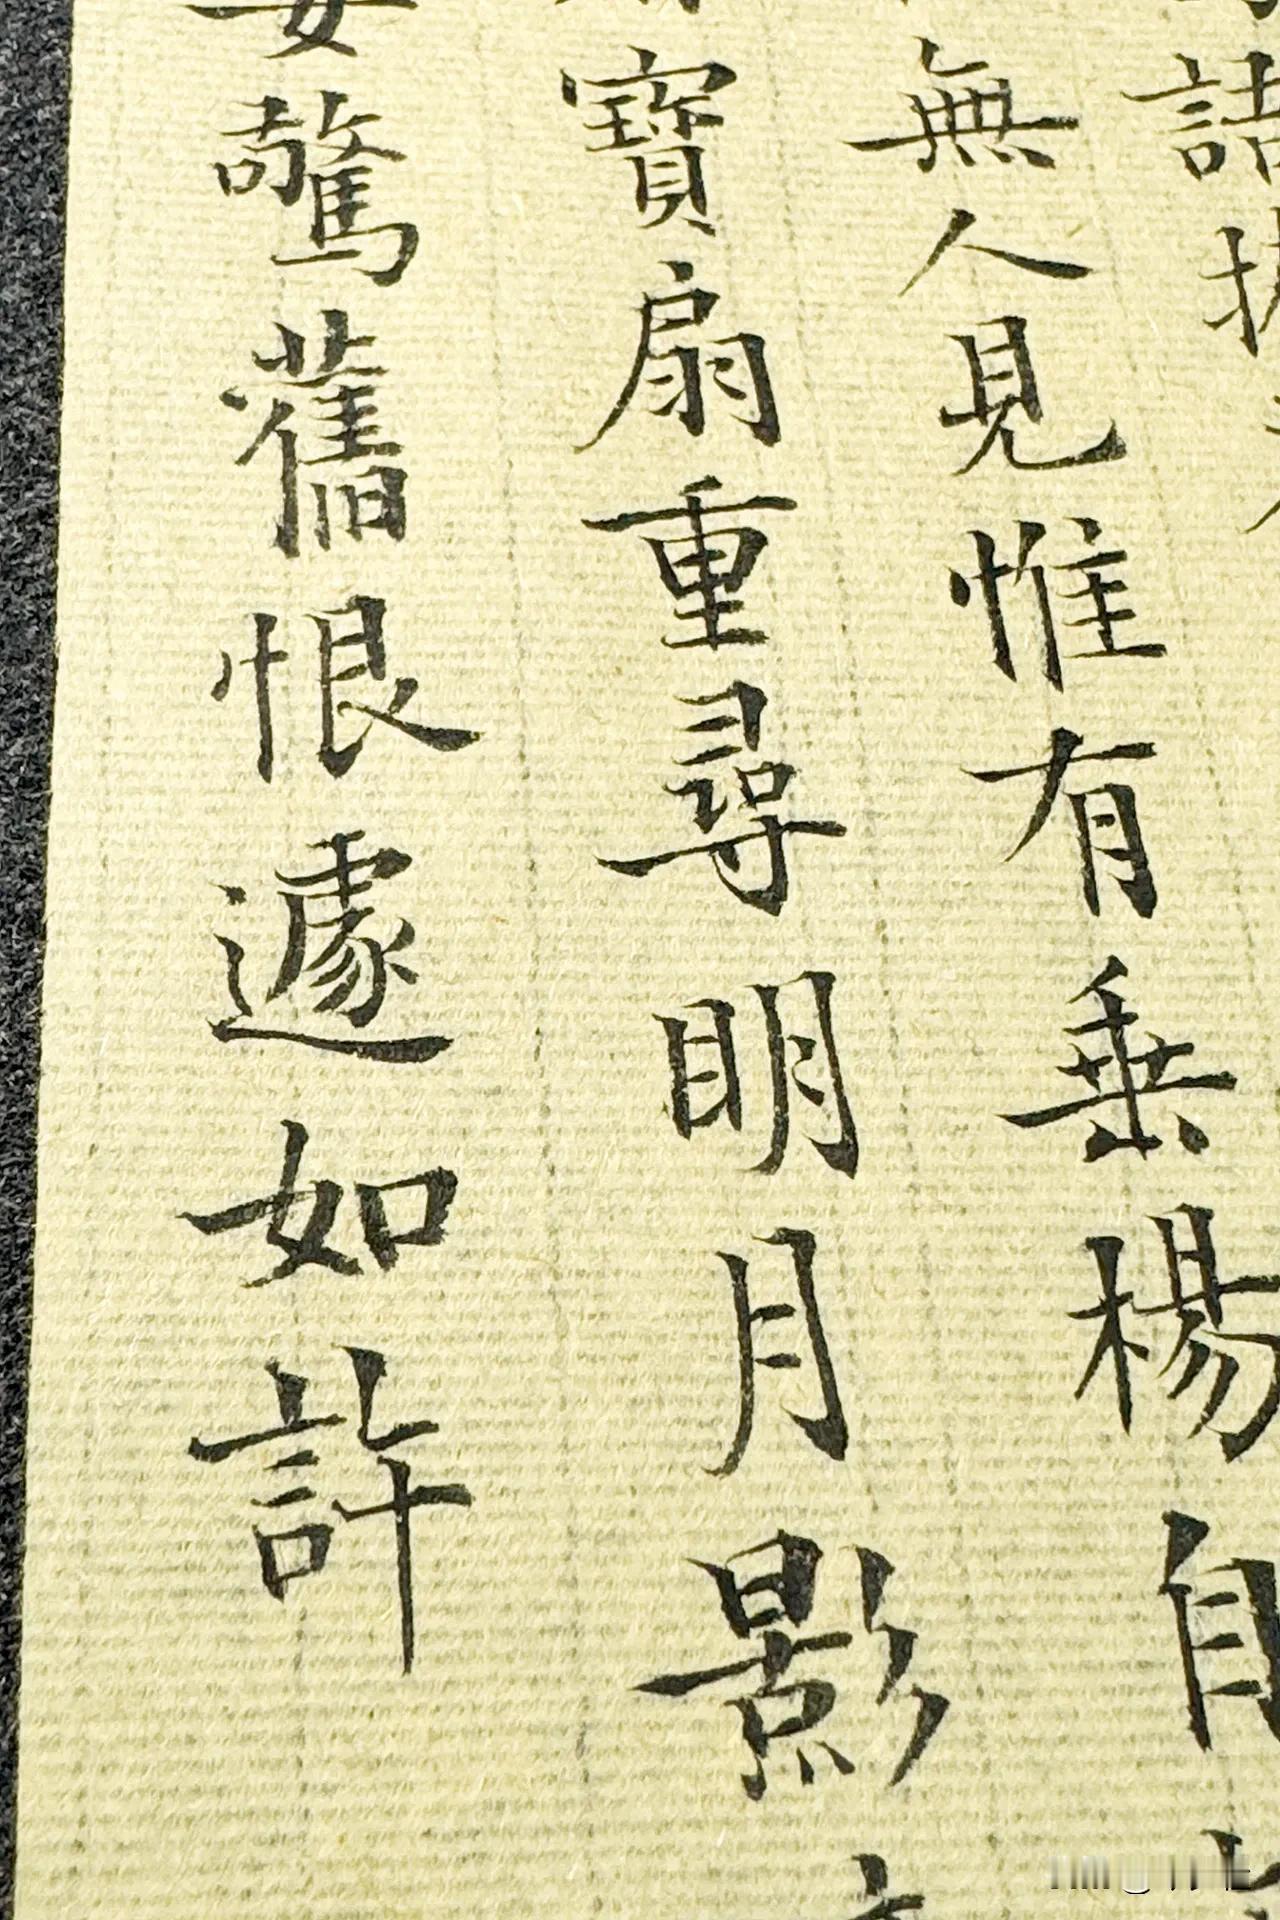 無人見惟有垂楊自
寶扇重尋明月影
女驚舊恨遽如許